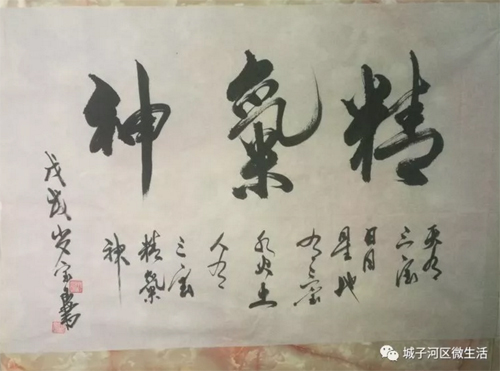 精氣神
天有
三宝
日月
星地
有三宝
水火土
人有
三宝
精氣
神
戊戌岁
城子河区微生活